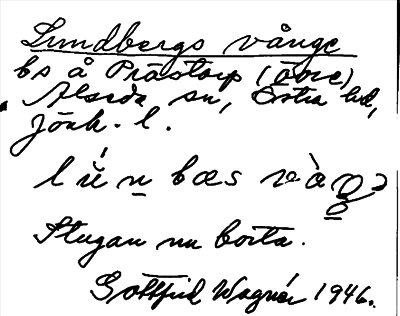 Lundbergs vånge
bs å Prästorp (övre)
Alseda sn, Östra hd,
Jönk. l.
Stugan nu borta.
Gottfrid Wagnér 1946.